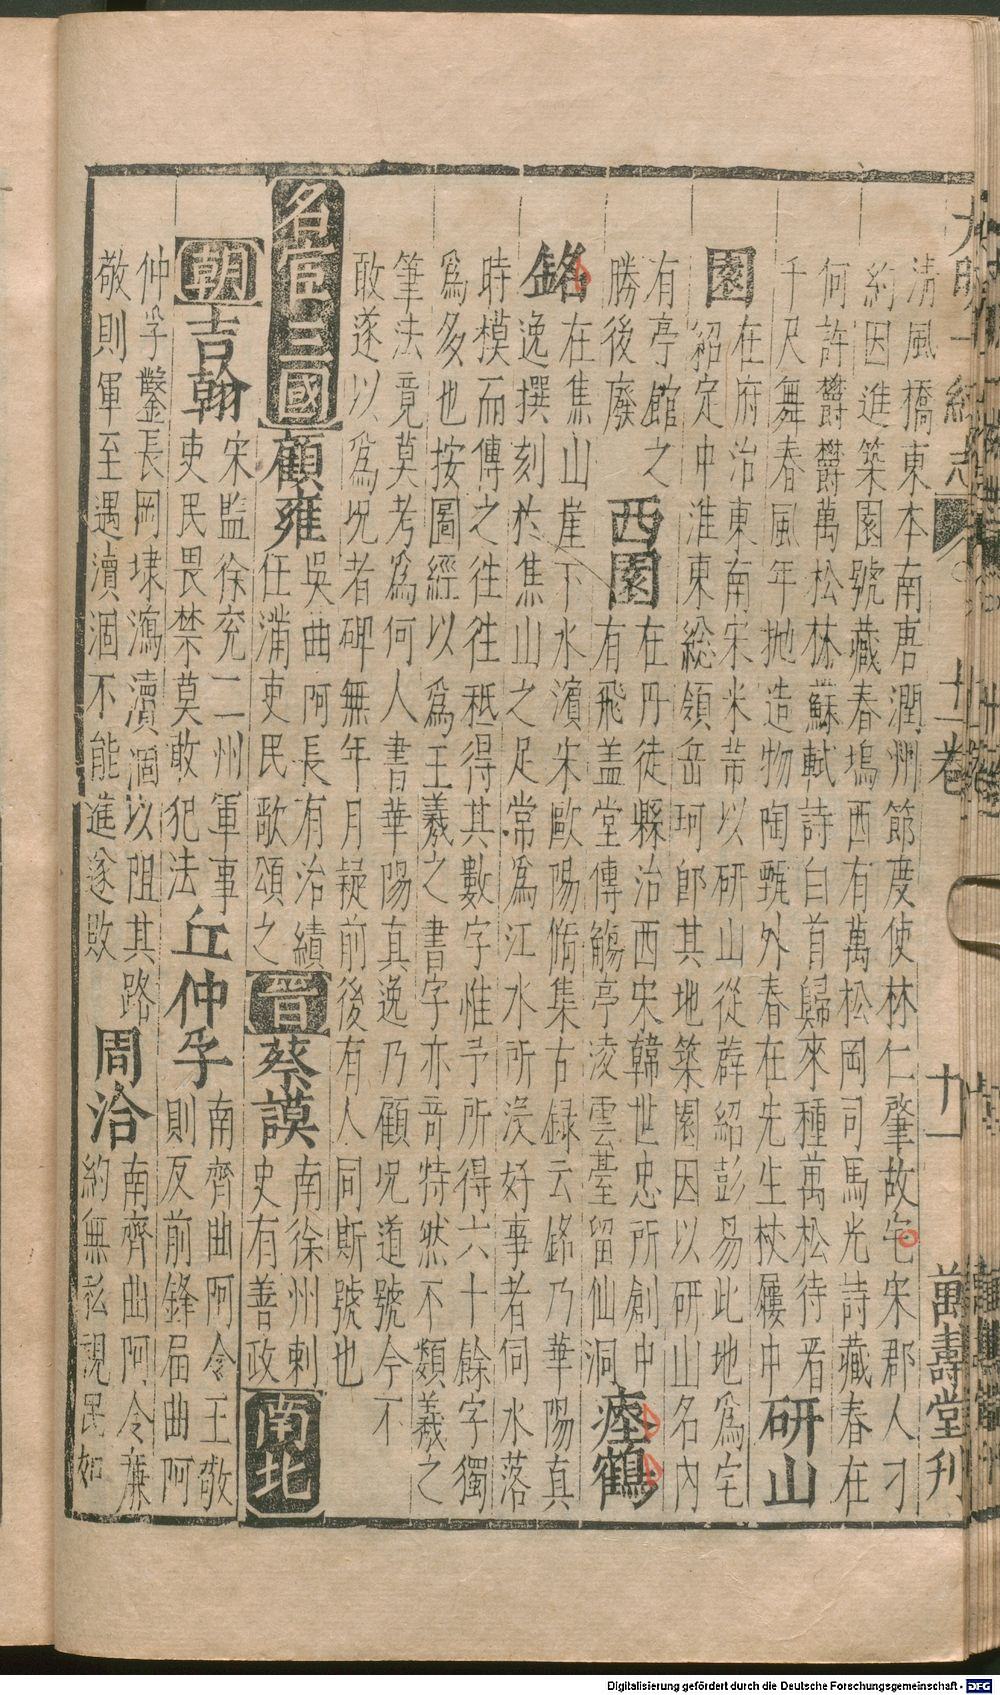 大明一統志 十一卷 十一 萬壽堂刊
清風橋東本南唐潤州節度使林仁肇故宅宋郡人刁
約因進築園號藏春塢西有萬松岡司馬光詩藏春在
何許鬱鬱萬松林蘇軾詩白首歸來種萬松待看
千尺舞春風年拋造物陶甄外春在先生杖屨中
研山
園
在府治東南宋米芾以研山從薛紹彭易此地爲宅
紹定中淮東総領岳珂郎其地築園因以研山名内
有亭館之
勝後廢
西園
在丹徒縣治西宋韓世忠所創中
有飛盖堂傳觴亭凌雲臺留仙洞
瘞鶴
銘
在焦山崖下水濱宋歐陽脩集古録云銘乃華陽真
逸撰刻於焦山之足常爲江水所没好事者伺水落
時模而傳之徃徃秪得其數字惟予所得六十餘字獨
爲多也按圖經以爲王羲之書字亦竒特然不類羲之
筆法竟莫考爲何人書華陽真逸乃顧况道號今不
敢遂以爲况者碑無年月疑前後有人同斯號也
名宦三國
顧雍
吳曲阿長有治績
任滿吏民歌頌之
晉
蔡謨
南徐州刺
史有善政
南北
朝
吉翰
宋監徐兖二州軍事
吏民畏禁莫敢犯法
丘仲孚
南齊曲阿令王敬
則反前鋒届曲阿
仲孚鑿長岡埭瀉瀆涸以阻其路
敬則軍至遇瀆涸不能進遂敗
周洽
南齊曲阿令亷
約無私視民如
Digitalisierung gefördert durch die Deutsche Forschungsgemeinschaft - DFG